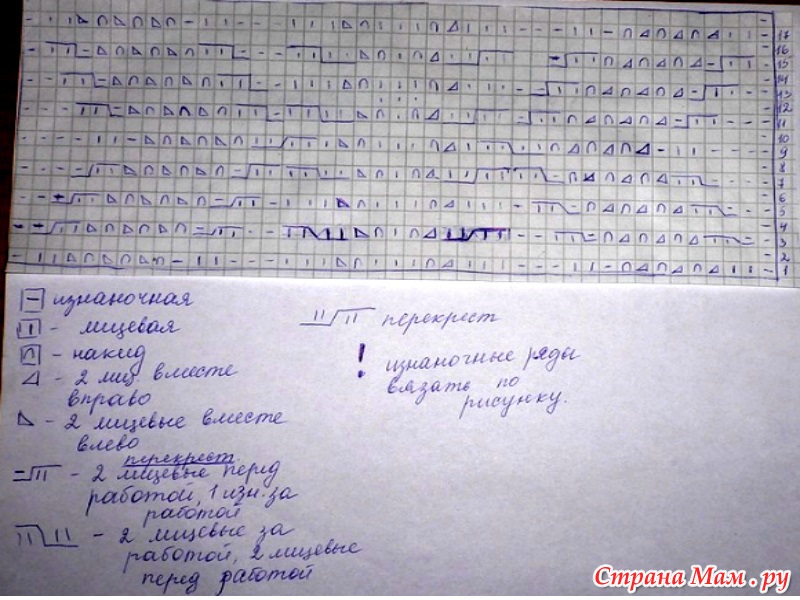 17
16
15
14
13
12
11
10
9
8
7
6
5
4
3
2
1
- изнаночная
ı - лицевая
∩ - накид
⊿ - 2 лиц. вместе
вправо
◺ - 2 лицевые вместе
влево
перекрест.
- 2 лицевые перед
работой, 1 изн. за
работой
- 2 лицевые за
работой, 2 лицевые
перед работой
перекрест
! изнаночные ряды
вязать по
рисунку.
Страна Мам.ру